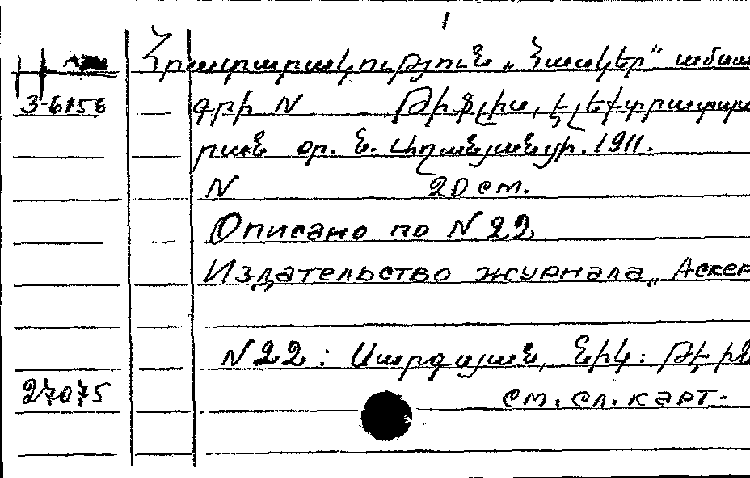 1
Հրատարակություն „Հասկեր“ ամսա
3-6156 գրի N Թիֆլիս, Էլեքտրատպա
րան օր. Ն. Աղանյանցի. 1911.
N 20 см.
Описано по N 22
Издательство журнала „Аскер
N 22: Սարգսյան, Նիկ:
27075 см. сл. карт-